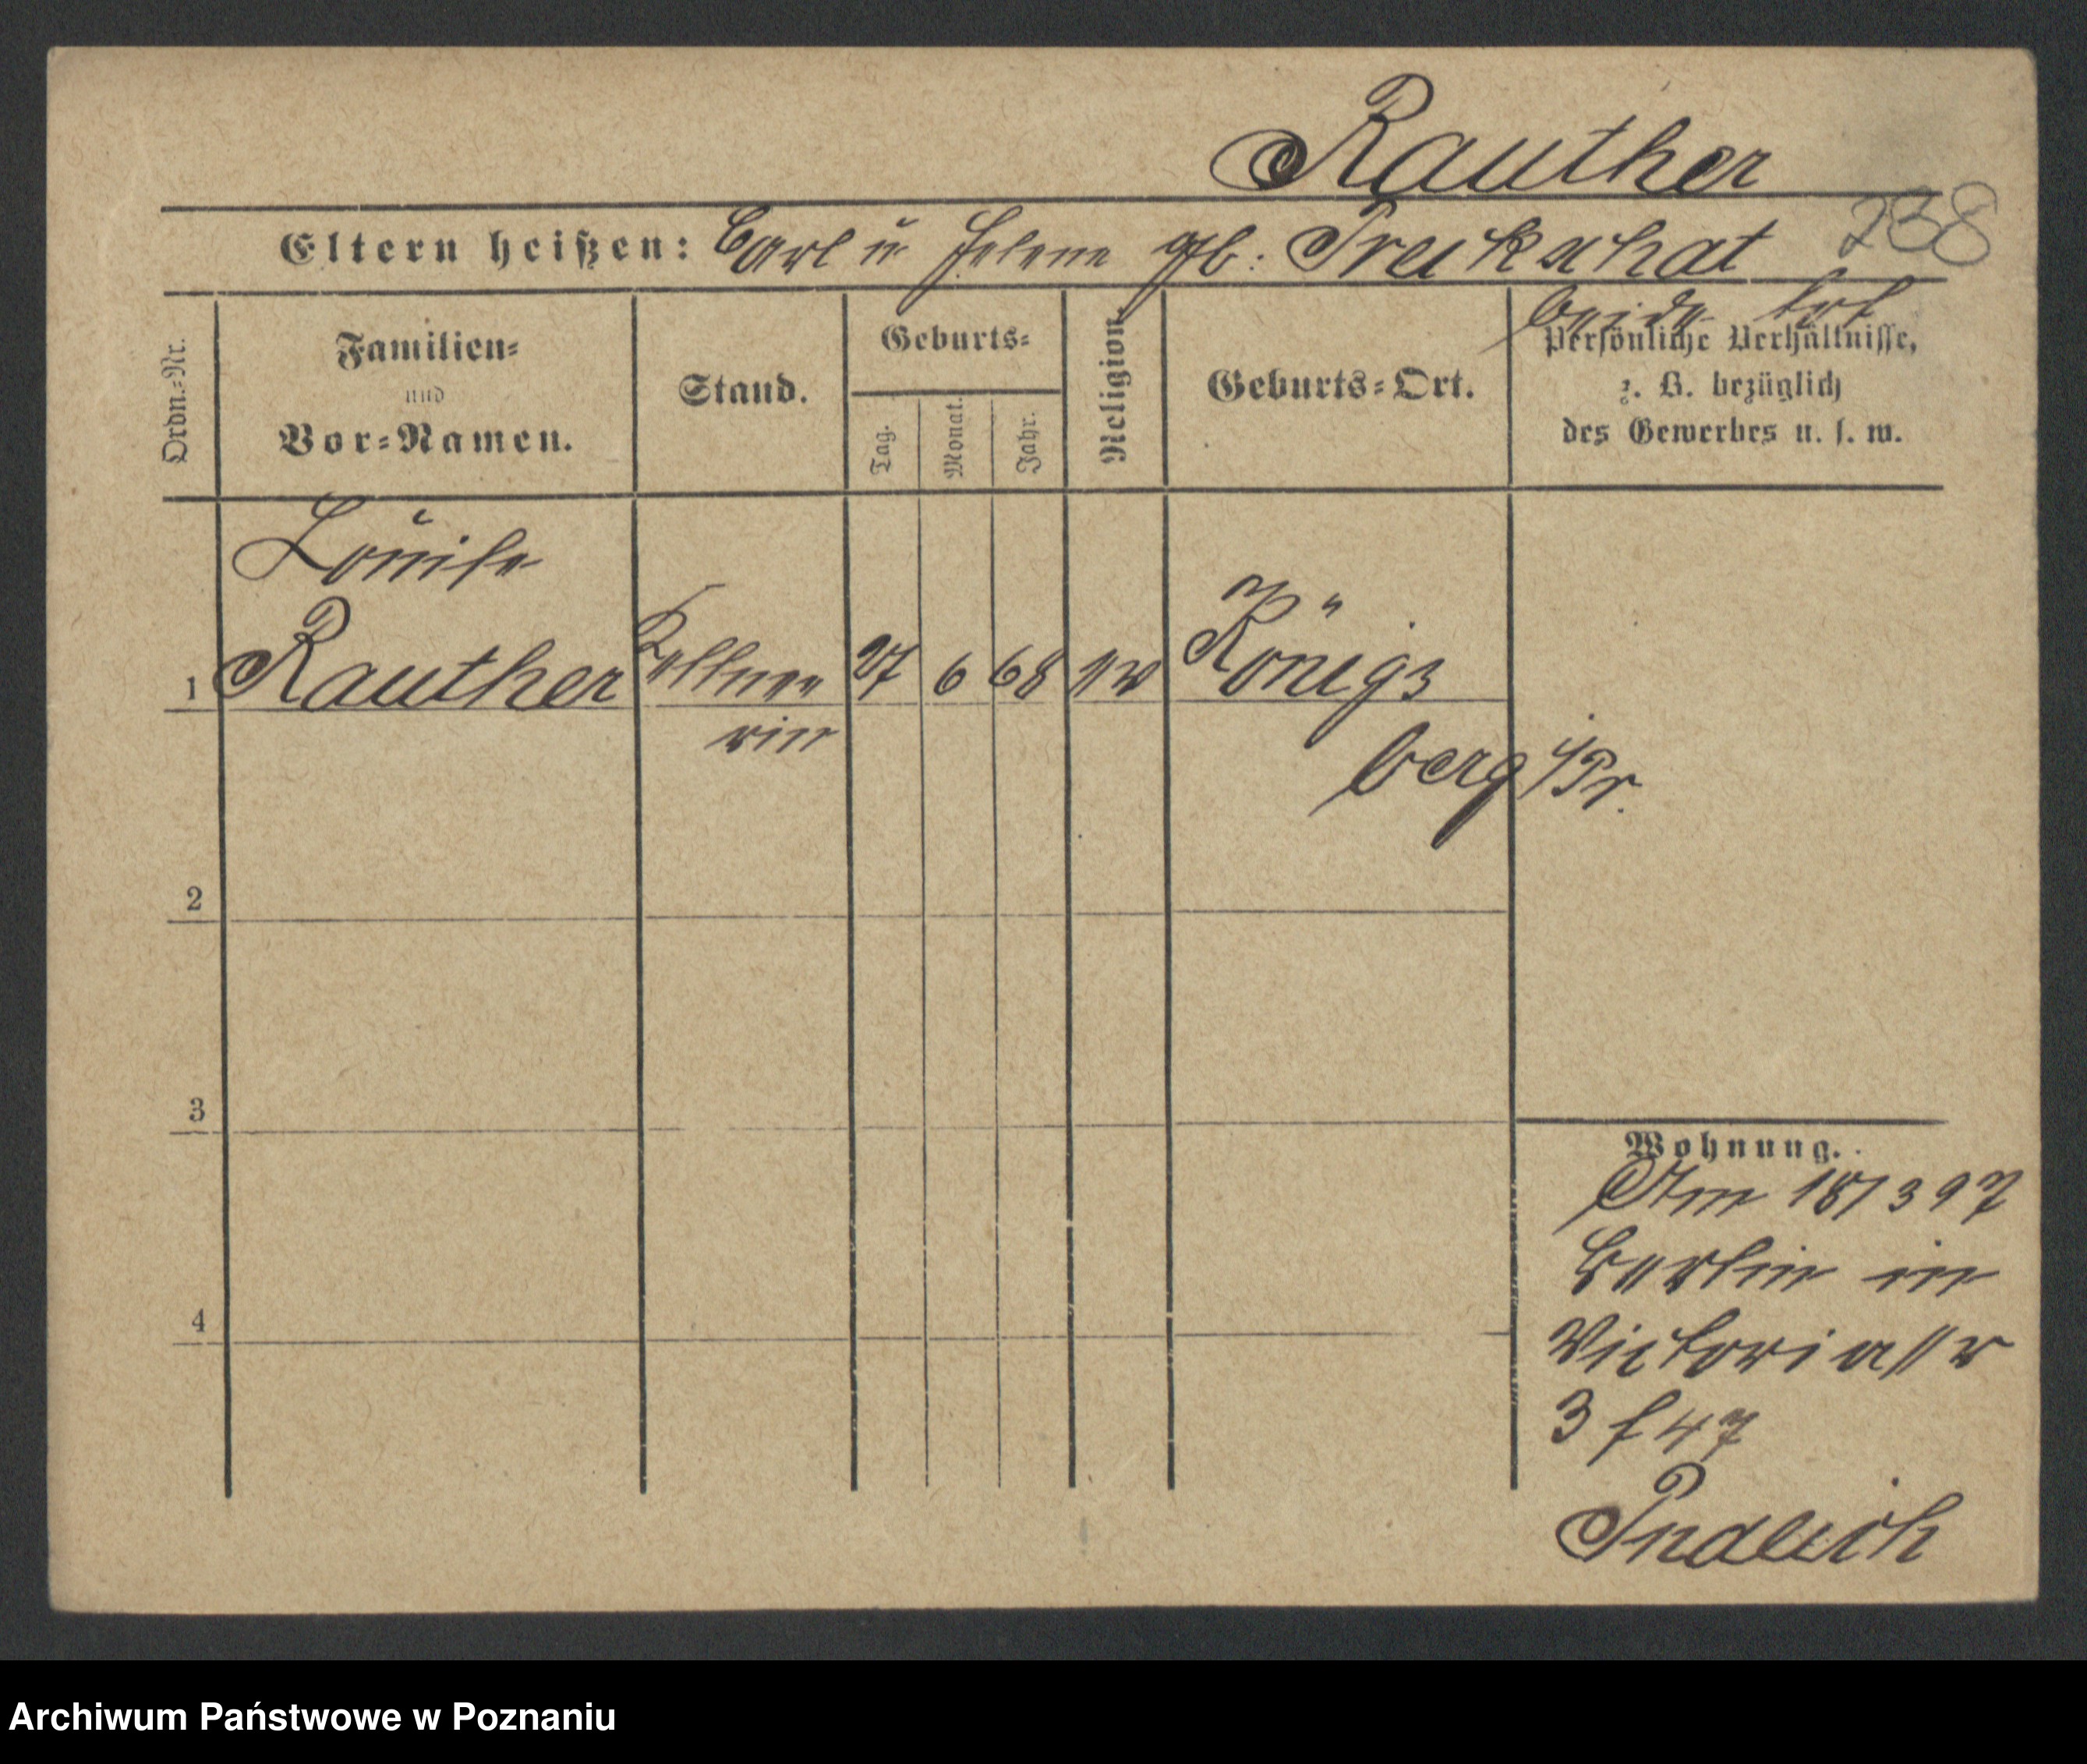 Rauther
238
Eltern heißen: Carl u Helene geb: Preikschat
beide tot
Ordn.-Nr.
Familien-
und
Vor-Namen.
Stand.
Geburts-
Tag.
Monat.
Jahr.
Religion.
Geburts-Ort.
Persönliche Verhältnisse,
z. B. bezüglich
des Gewerbes u. s. w.
Louise
1 Rauther Kellne 27 6 68 Königs
rin
berg i/Pr.
2
3
Wohnung.
Am 18/3 97
Berlin in
4
Victoriastr
3 f 47